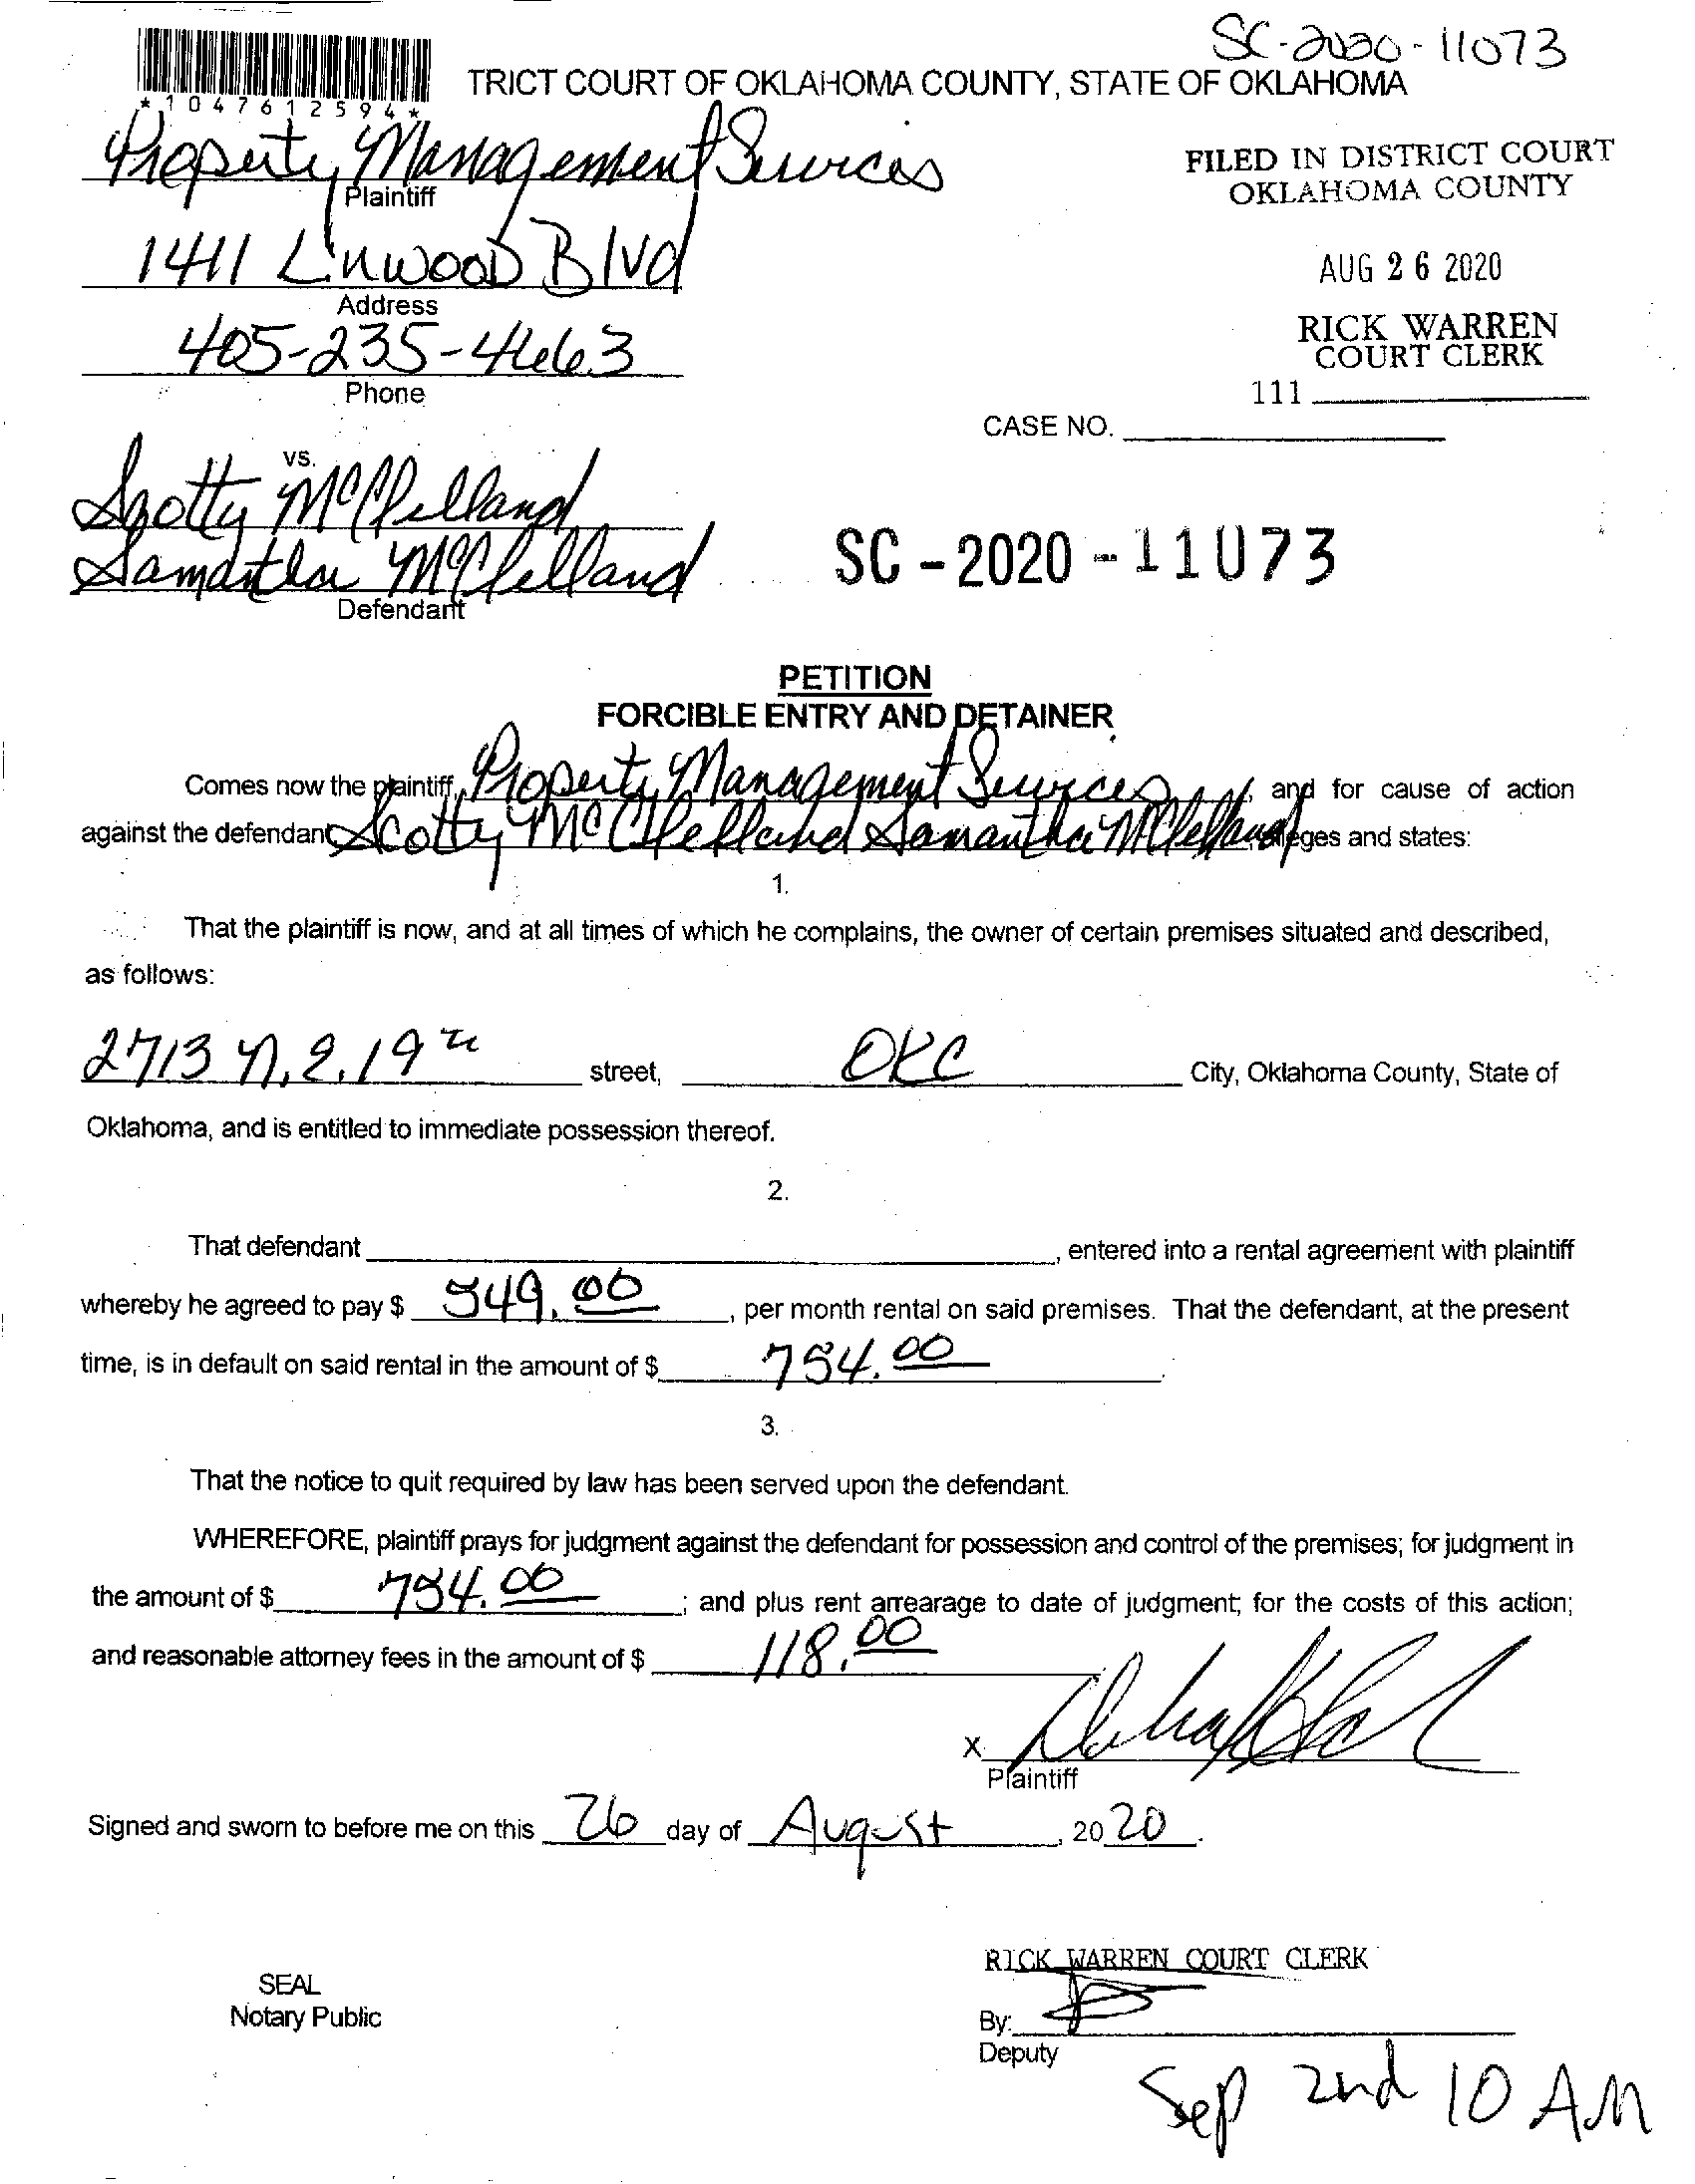 SC-2020-11073
TRICT COURT OF OKLAHOMA COUNTY, STATE OF OKLAHOMA
*1047612594*
Property Management Services
Plaintiff
FILED IN DISTRICT COURT
OKLAHOMA COUNTY
1411 Linwood Blvd
Address
AUG 26 2020
405-235-4663
Phone
RICK WARREN
COURT CLERK
111
CASE NO.
vs.
Scotty McClelland
Samantha McClelland
Defendant
SC-2020-11073
PETITION
FORCIBLE ENTRY AND DETAINER
Comes now the plaintiff, Property Management Services, and for cause of action
against the defendant Scotty McClelland Samantha McClelland alleges and states:
1.
That the plaintiff is now, and at all times of which he complains, the owner of certain premises situated and described,
as follows:
2713 N.E. 19th street, OKC City, Oklahoma County, State of
Oklahoma, and is entitled to immediate possession thereof.
2.
That defendant , entered into a rental agreement with plaintiff
whereby he agreed to pay $ 549.00 , per month rental on said premises. That the defendant, at the present
time, is in default on said rental in the amount of $ 754.00 .
3.
That the notice to quit required by law has been served upon the defendant.
WHEREFORE, plaintiff prays for judgment against the defendant for possession and control of the premises; for judgment in
the amount of $ 754.00 ; and plus rent arrearage to date of judgment; for the costs of this action;
and reasonable attorney fees in the amount of $ 118.00
X
Plaintiff
Signed and sworn to before me on this 26 day of August , 2020 .
RICK WARREN COURT CLERK
SEAL
Notary Public
By:
Deputy
Sep 2nd 10 AM